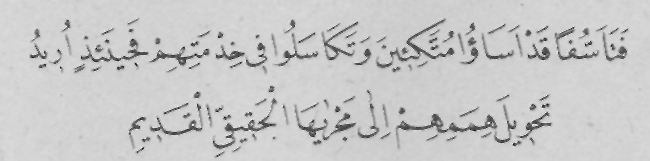 فَتَاَسُّفًا قَدْ اَسَاؤُا مُتَّكِئِينَ وَتَكَاسَلُوا فِى خِدْمَتِهِمْ فَحِينَئِذٍ اُرِيدُ
تَحْوِيلَ هِمَمِهِمْ اِلٰى مَجْرٰيهَا الْحَقِيقِىِّ الْقَدِيمِ